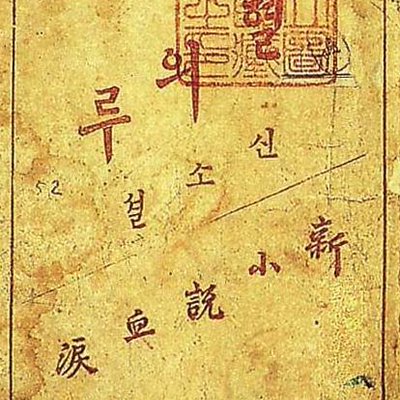 혈의루
신소셜
新小說血淚
52